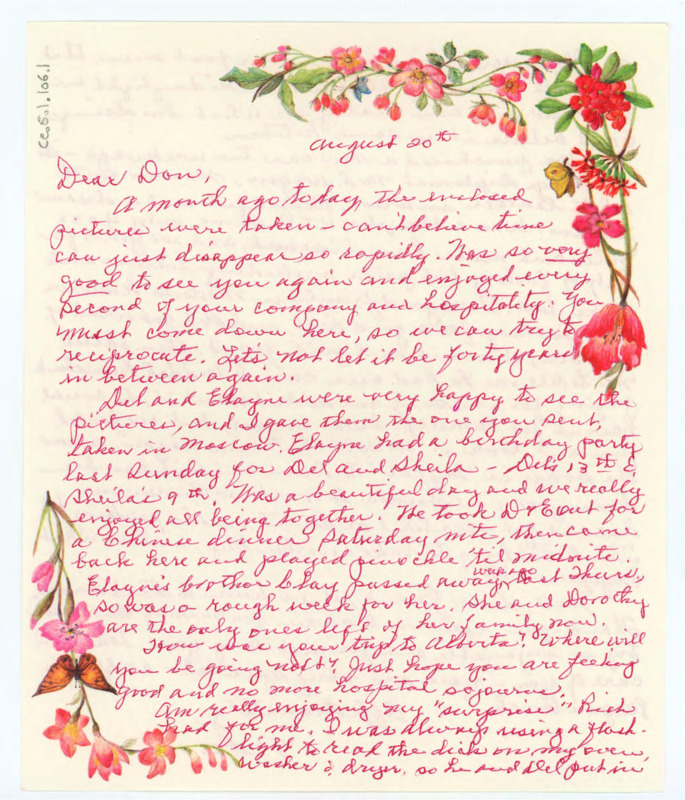 CC.50.1.106.1
August 20th
Dear Don,
A month ago today, the enclosed
pictures were taken – can't believe time
can just disappear so rapidly. Was so very
good to see you again and enjoyed every
second of your company and hospitality. You
must come down here, so we can try to
reciprocate. Let's not let it be forty years
in between again.
Del and Elayne were very happy to see the
pictures, and I gave them the one you sent,
taken in Moscow. Elayne had a birthday party
last Sunday for Del and Sheila – Del's 13th &
Sheila's 9th. Was a beautiful day and we really
enjoyed all being together. We took D & E out for
a Chinese dinner Saturday nite, then came
back here and played pinochle 'til midnite.
Elayne's brother Clay passed away week ago last Thurs,
so was a rough week for her. She and Dorothy
are the only ones left of her family now.
How was your trip to Alberta? Where will
you be going next? Just hope you are feeling
good and no more hospital sojourns.
Am really enjoying my "surprise" Rich
had for me. I was always using a flash-
light to read the dials on my oven,
washer & dryer, so he and Del put in